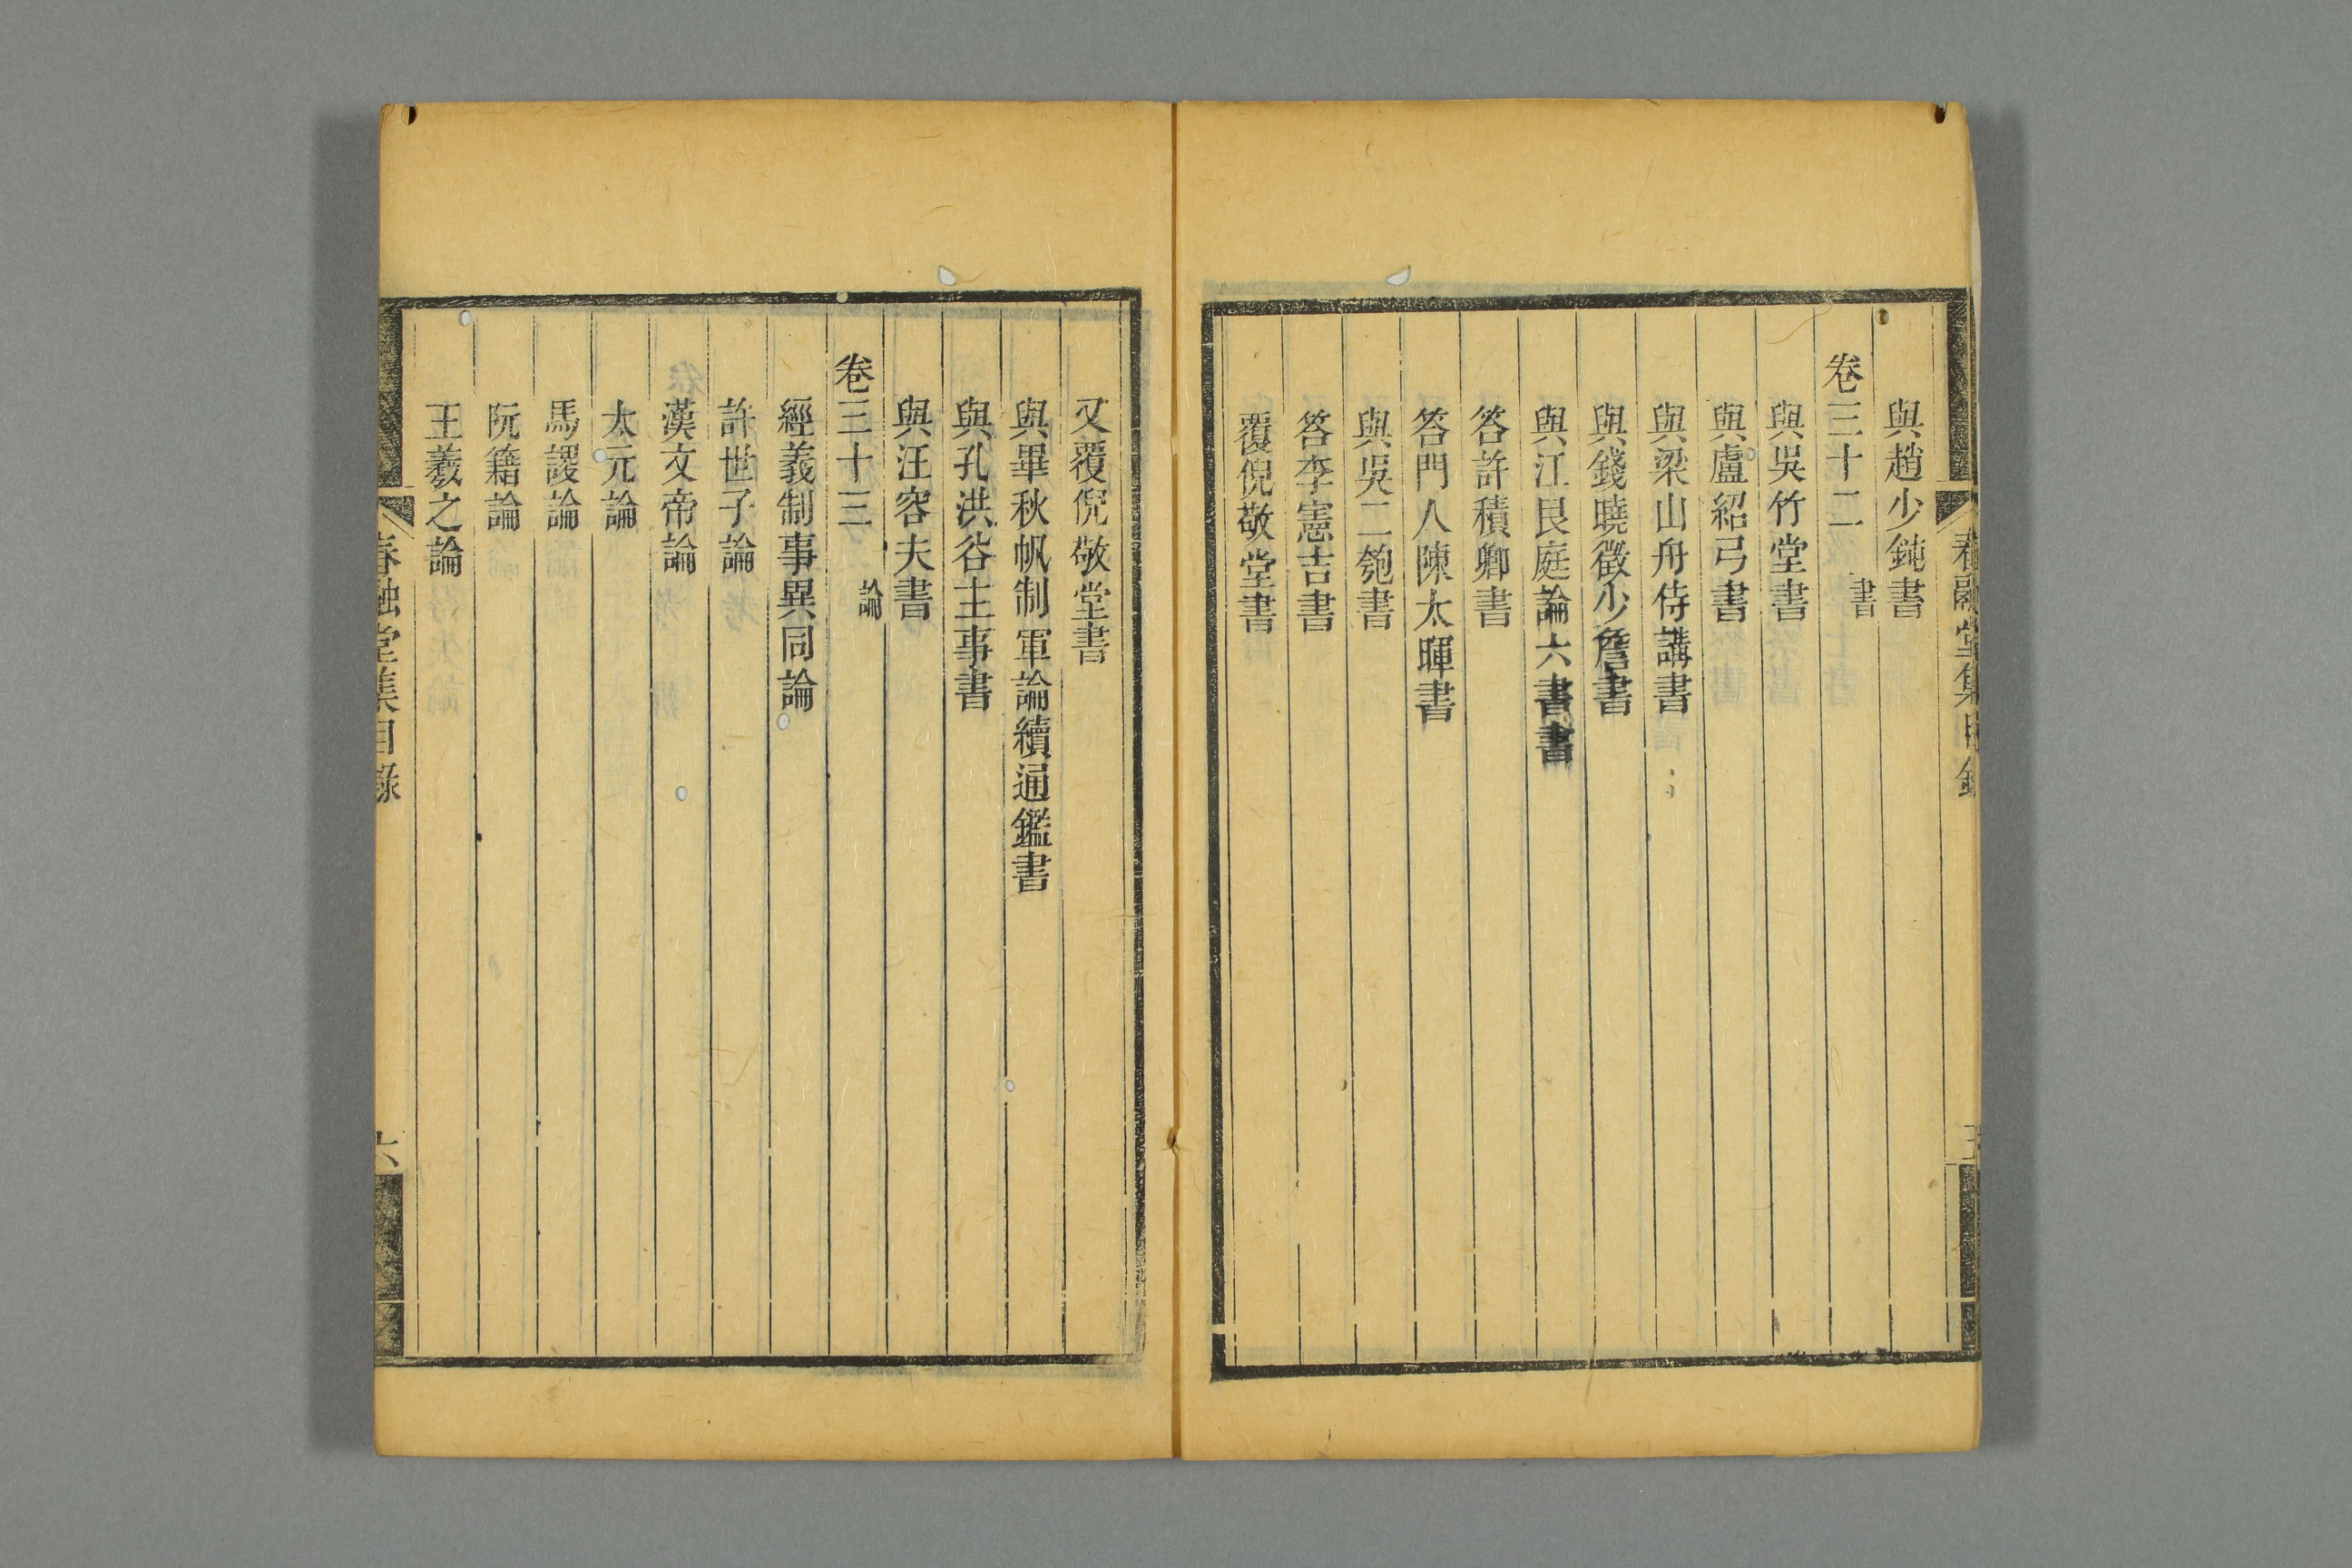 春融堂集目錄
與趙少鈍書
卷三十二 書
與吳竹堂書
與盧紹弓書
與梁山舟侍講書
與錢曉徵少詹書
與江艮庭論六書書
答許積卿書
答門人陳太暉書
與吳二匏書
答李憲吉書
覆倪敬堂書
又覆倪敬堂書
與畢秋帆制軍論續通鑑書
與孔洪谷主事書
與汪容夫書
卷三十三 論
經義制事異同論
許世子論
漢文帝論
太元論
馬謖論
阮籍論
王羲之論
春融堂集目錄
六